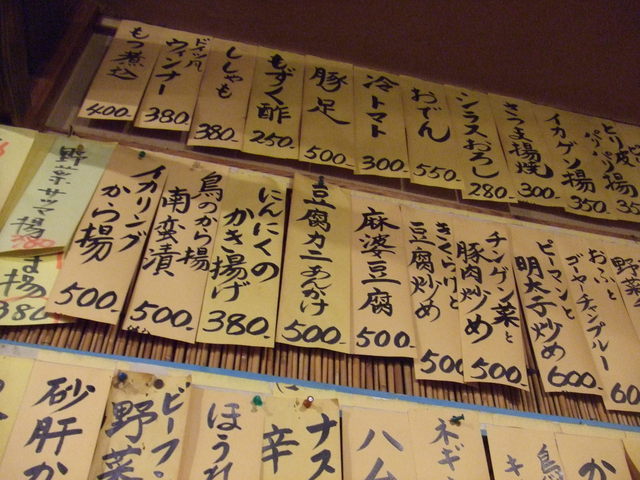 もつ煮込
400-
ドイツ風
ウィンナー
380-
ししゃも
380-
もずく酢
250-
豚足
500-
冷トマト
300-
おでん
550-
シラスおろし
280-
さつま揚焼
300-
イカゲソ揚
350-
とり皮
パリパリ揚
35
野菜サツマ揚
380-
ま揚
380
イカリング
から揚
500-
鳥のから揚
南蛮漬
500-
にんにくの
かき揚げ
380-
豆腐カニあんかけ
500-
麻婆豆腐
500-
きくらげと
豆腐炒め
500
チンゲン菜と
豚肉炒め
500-
ピーマンと
明太子炒め
600-
おふと
ゴーヤーチャンプルー
600
野菜
砂肝か
ビーフ
野菜
ほうれ
ナス
辛
ハム
ネギ
鳥
キ
か